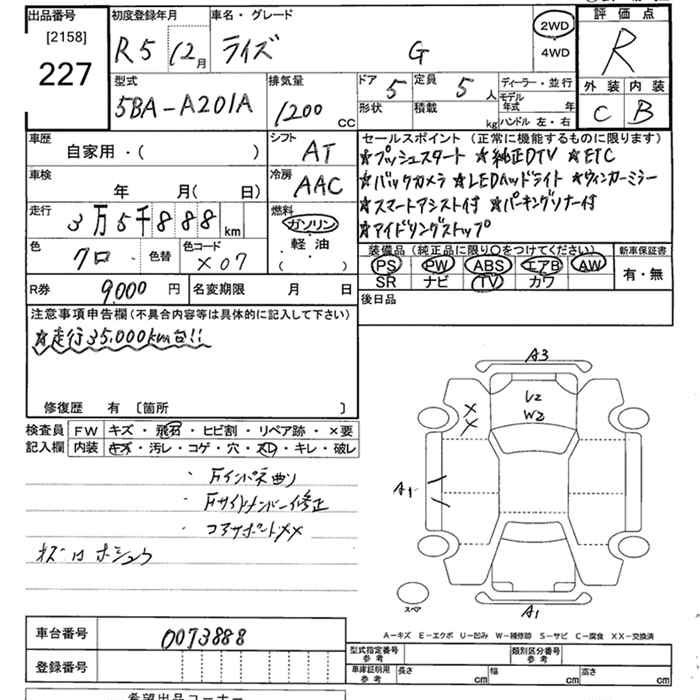 出品番号 初度登録年月 車名・グレード 2WD 4WD 評価点
[2158]
227 R5 12月 ライズ G R
型式 排気量 ドア 5 定員 5人 ディーラー・並行 外装 内装
5BA-A201A 1200cc 形状 積載 kg モデル年式 年 C B
ハンドル 左・右
車歴 シフト セールスポイント（正常に機能するものに限ります）
自家用・（ ） AT ☆プッシュスタート ☆純正DTV ☆ETC
車検 冷房 ☆バックカメラ ☆LEDヘッドライト ☆ウィンカーミラー
年 月（ 日） AAC ☆スマートアシスト付 ☆パーキングソナー付
走行 燃料 ☆アイドリングストップ
3万5千888km ガソリン
軽油
（ ）
色 クロ 色替 色コード X07
装備品（純正品に限り〇をつけてください） 新車保証書
PS PW ABS エアB AW 有・無
SR ナビ TV カワ
R券 9,000円 名変期限 月 日 後日品
注意事項申告欄（不具合内容等は具体的に記入して下さい）
☆走行35,000km台!!
修復歴 有 〔箇所 〕
検査員 FW キズ・飛石・ヒビ割・リペア跡・×要
記入欄 内装 キズ・汚レ・コゲ・穴・スレ・キレ・破レ
・Fインパネ曲り
・Fサイドメンバー修正
・コアサポートXX
A3
U2
W2
X
X
A1
スペア
A1
A－キズ E－エクボ U－凹み W－補修跡 S－サビ C－腐食 XX－交換済
車台番号 0073888
型式指定番号 参考 類別区分番号 参考
登録番号 車庫証明用 参考 長さ cm 幅 cm 高さ cm
希望出品コーナー